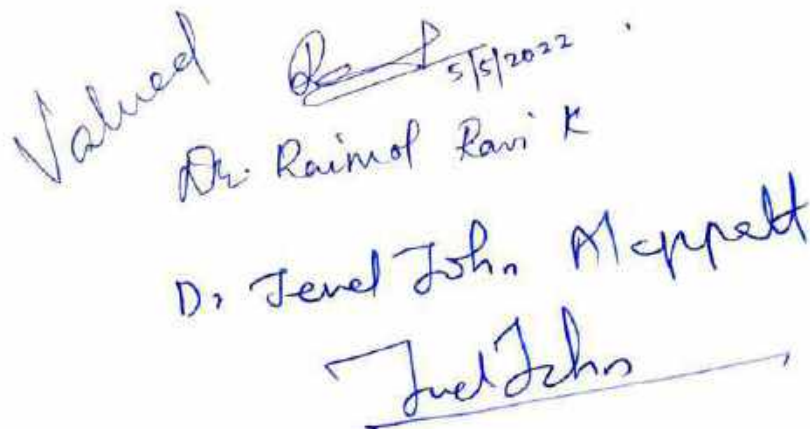 Valued
5/5/2022
Dr. Raimol Ravi K
Dr Jewel John Aleppatt
Jewel John